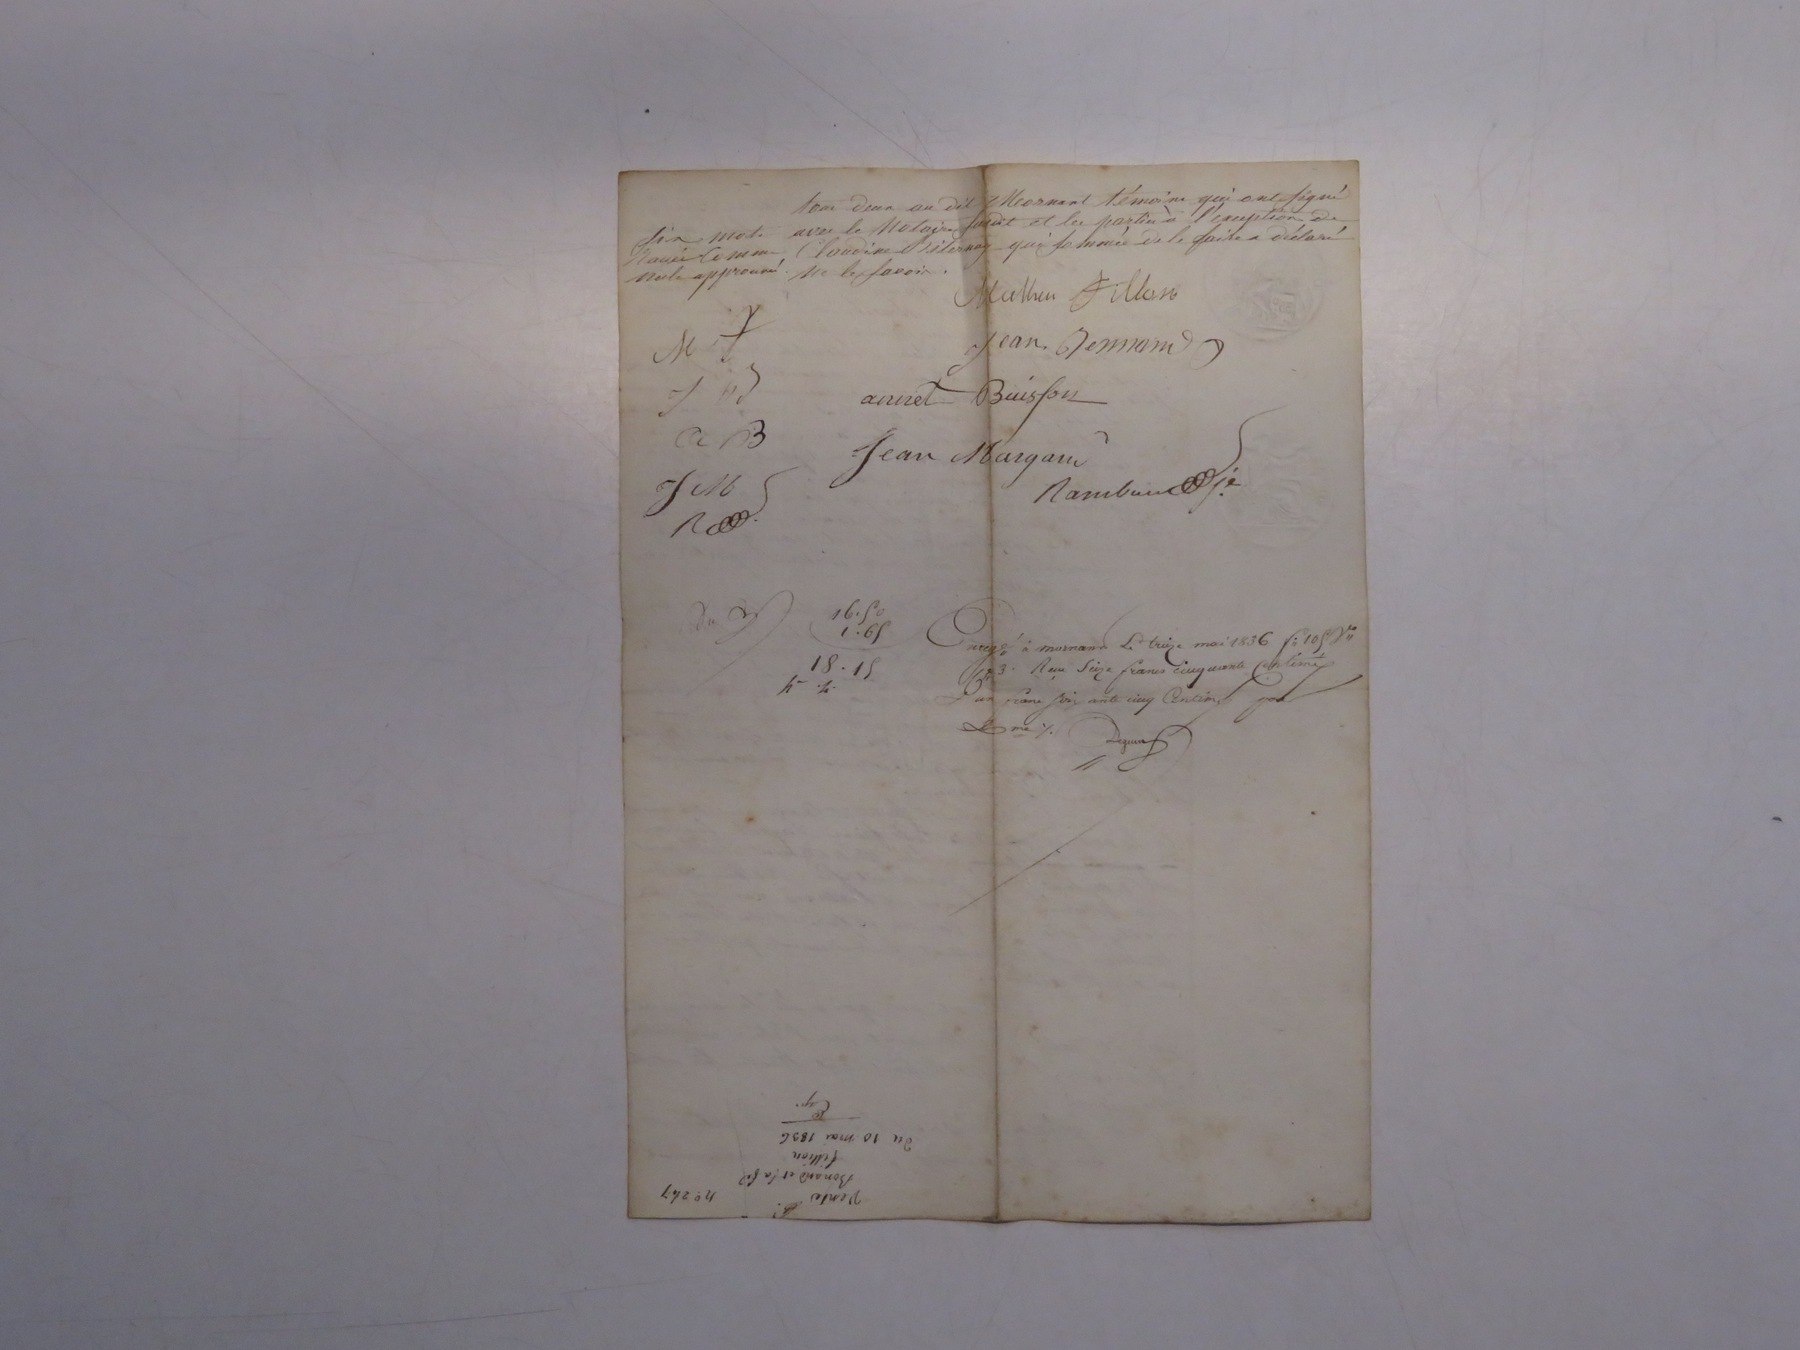 tous deux au dit Mornant témoins qui ont signé
avec le Notaire susdit et les parties à l'exception de
Claudine qui sommée de le faire a déclaré
ne le savoir.
Six mots
Rayés comme
nuls approuvé
Mathieu Fillon
Jean
anset Buisson
Jean Margand
Rambaud
M
J
a B
J M
R
16.50
1.65
18.15
4-4
Enregé à mornant Le treize mai 1836 fo 105 Vo
3. Reçu Seize francs cinquante Centimes
un franc soixante cinq Centimes pour
Dme
No 247
Vente
Bonand et la fe
fillion
Du 10 mai 1836